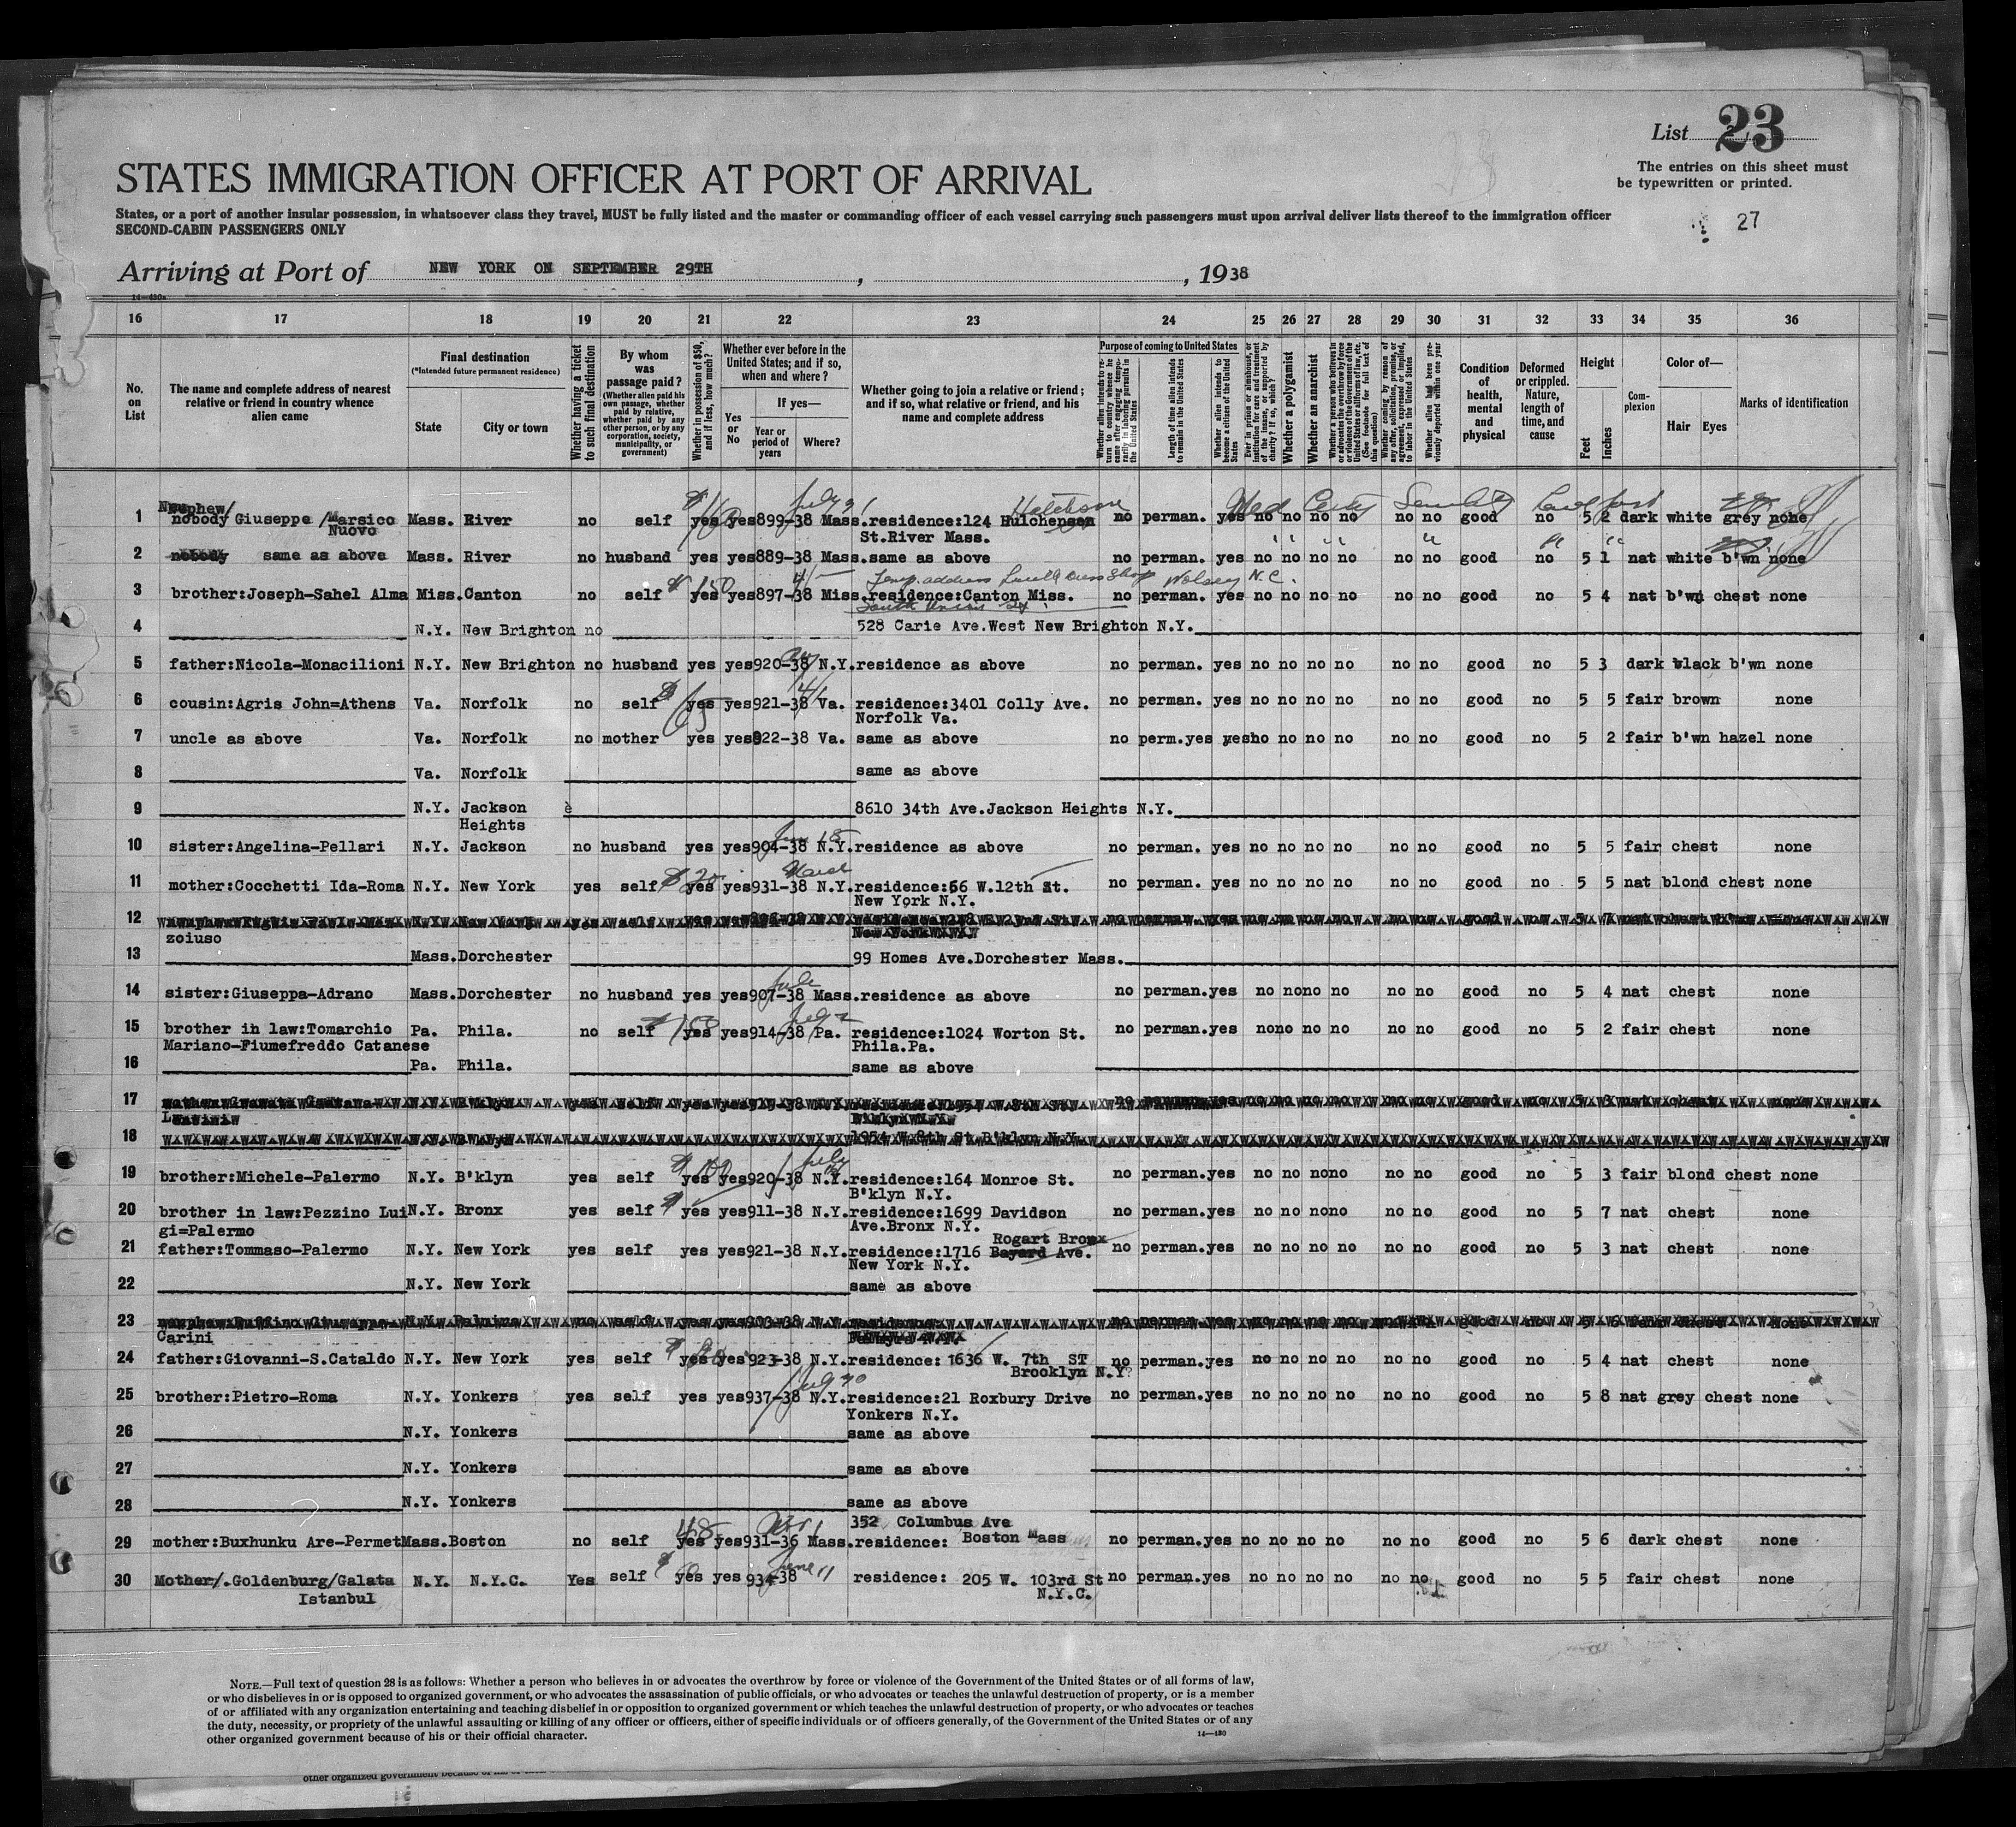 List 23
The entries on this sheet must
be typewritten or printed.
27
STATES IMMIGRATION OFFICER AT PORT OF ARRIVAL
States, or a port of another insular possession, in whatsoever class they travel, MUST be fully listed and the master or commanding officer of each vessel carrying such passengers must upon arrival deliver lists thereof to the immigration officer
SECOND-CABIN PASSENGERS ONLY
Arriving at Port of NEW YORK ON SEPTEMBER 29TH, , 1938
14—430a
16 17 18 19 20 21 22 23 24 25 26 27 28 29 30 31 32 33 34 35 36
No. on List
The name and complete address of nearest relative or friend in country whence alien came
Final destination (*Intended future permanent residence)
State
City or town
Whether having a ticket to such final destination
By whom was passage paid? (Whether alien paid his own passage, whether paid by relative, whether paid by any other person, or by any corporation, society, municipality, or government)
Whether in possession of $50, and if less, how much?
Whether ever before in the United States; and if so, when and where?
Yes or No
If yes—
Year or period of years
Where?
Whether going to join a relative or friend; and if so, what relative or friend, and his name and complete address
Purpose of coming to United States
Whether alien intends to return to country whence he came after engaging temporarily in laboring pursuits in the United States
Length of time alien intends to remain in the United States
Whether alien intends to become a citizen of the United States
Ever in prison or almshouse, or institution for care and treatment of the insane, or supported by charity? If so, which?
Whether a polygamist
Whether an anarchist
Whether a person who believes in or advocates the overthrow by force or violence of the Government of the United States or all forms of law, etc. (See footnote for full text of this question)
Whether coming by reason of any offer, solicitation, promise, or agreement, expressed or implied, to labor in the United States
Whether alien had been previously deported within one year
Condition of health, mental and physical
Deformed or crippled. Nature, length of time, and cause
Height
Feet
Inches
Complexion
Color of—
Hair Eyes
Marks of identification
Nephew/
1 nobody Giuseppe /Marsico Mass. River no self yes yes 899-38 Mass. residence:124 Hulchenson no perman. yes no no no no no no good no 5 2 dark white grey none
Nuovo St.River Mass.
2 nobody same as above Mass. River no husband yes yes 889-38 Mass. same as above no perman. yes no no no no no no good no 5 1 nat white b'wn none
Temp. address Dress Shop N.C.
3 brother:Joseph-Sahel Alma Miss. Canton no self $150 yes yes 897-38 Miss. residence:Canton Miss. no perman. yes no no no no no no good no 5 4 nat b'wn chest none
4 N.Y. New Brighton no 528 Carie Ave.West New Brighton N.Y.
5 father:Nicola-Monacilioni N.Y. New Brighton no husband yes yes 920-38 N.Y. residence as above no perman. yes no no no no no no good no 5 3 dark black b'wn none
6 cousin:Agris John=Athens Va. Norfolk no self yes yes 921-38 Va. residence:3401 Colly Ave. no perman. yes no no no no no no good no 5 5 fair brown none
Norfolk Va.
7 uncle as above Va. Norfolk no mother yes yes 922-38 Va. same as above no perm.yes yes no no no no no no good no 5 2 fair b'wn hazel none
8 Va. Norfolk same as above
9 N.Y. Jackson 8610 34th Ave.Jackson Heights N.Y.
Heights
10 sister:Angelina-Pellari N.Y. Jackson no husband yes yes 904-38 N.Y. residence as above no perman. yes no no no no no no good no 5 5 fair chest none
11 mother:Cocchetti Ida-Roma N.Y. New York yes self yes yes 931-38 N.Y. residence:56 W.12th St. no perman. yes no no no no no no good no 5 5 nat blond chest none
New York N.Y.
12
zoiuso
13 Mass. Dorchester 99 Homes Ave.Dorchester Mass.
14 sister:Giuseppa-Adrano Mass. Dorchester no husband yes yes 907-38 Mass. residence as above no perman.yes no no no no no no good no 5 4 nat chest none
15 brother in law:Tomarchio Pa. Phila. no self yes yes 914-38 Pa. residence:1024 Worton St. no perman.yes no no no no no no good no 5 2 fair chest none
Mariano-Fiumefreddo Catanese Phila.Pa.
16 Pa. Phila. same as above
17
18
19 brother:Michele-Palermo N.Y. B'klyn yes self $100 yes yes 920-38 N.Y. residence:164 Monroe St. no perman.yes no no no no no no good no 5 3 fair blond chest none
B'klyn N.Y.
20 brother in law:Pezzino Lui N.Y. Bronx yes self yes yes 911-38 N.Y. residence:1699 Davidson no perman.yes no no no no no no good no 5 7 nat chest none
gi=Palermo Ave.Bronx N.Y.
Rogart Bronx
21 father:Tommaso-Palermo N.Y. New York yes self yes yes 921-38 N.Y. residence:1716 Bayard Ave. no perman.yes no no no no no no good no 5 3 nat chest none
New York N.Y.
22 N.Y. New York same as above
23
Carini
24 father:Giovanni-S.Cataldo N.Y. New York yes self yes yes 923-38 N.Y. residence: 1636 W. 7th ST no perman.yes no no no no no no good no 5 4 nat chest none
Brooklyn N.Y.
25 brother:Pietro-Roma N.Y. Yonkers yes self yes yes 937-38 N.Y. residence:21 Roxbury Drive no perman.yes no no no no no no good no 5 8 nat grey chest none
Yonkers N.Y.
26 N.Y. Yonkers same as above
27 N.Y. Yonkers same as above
28 N.Y. Yonkers same as above
352 Columbus Ave
29 mother:Buxhunku Are-Permet Mass. Boston no self 48 yes yes 931-36 Mass. residence: Boston Mass no perman.yes no no no no no no good no 5 6 dark chest none
30 Mother/.Goldenburg/Galata N.Y. N.Y.C. Yes self yes yes 934-38 June 11 residence: 205 W. 103rd St no perman.yes no no no no no no good no 5 5 fair chest none
Istanbul N.Y.C.
NOTE.—Full text of question 28 is as follows: Whether a person who believes in or advocates the overthrow by force or violence of the Government of the United States or of all forms of law,
or who disbelieves in or is opposed to organized government, or who advocates the assassination of public officials, or who advocates or teaches the unlawful destruction of property, or is a member
of or affiliated with any organization entertaining and teaching disbelief in or opposition to organized government or which teaches the unlawful destruction of property, or who advocates or teaches
the duty, necessity, or propriety of the unlawful assaulting or killing of any officer or officers, either of specific individuals or of officers generally, of the Government of the United States or of any
other organized government because of his or their official character.
14—430